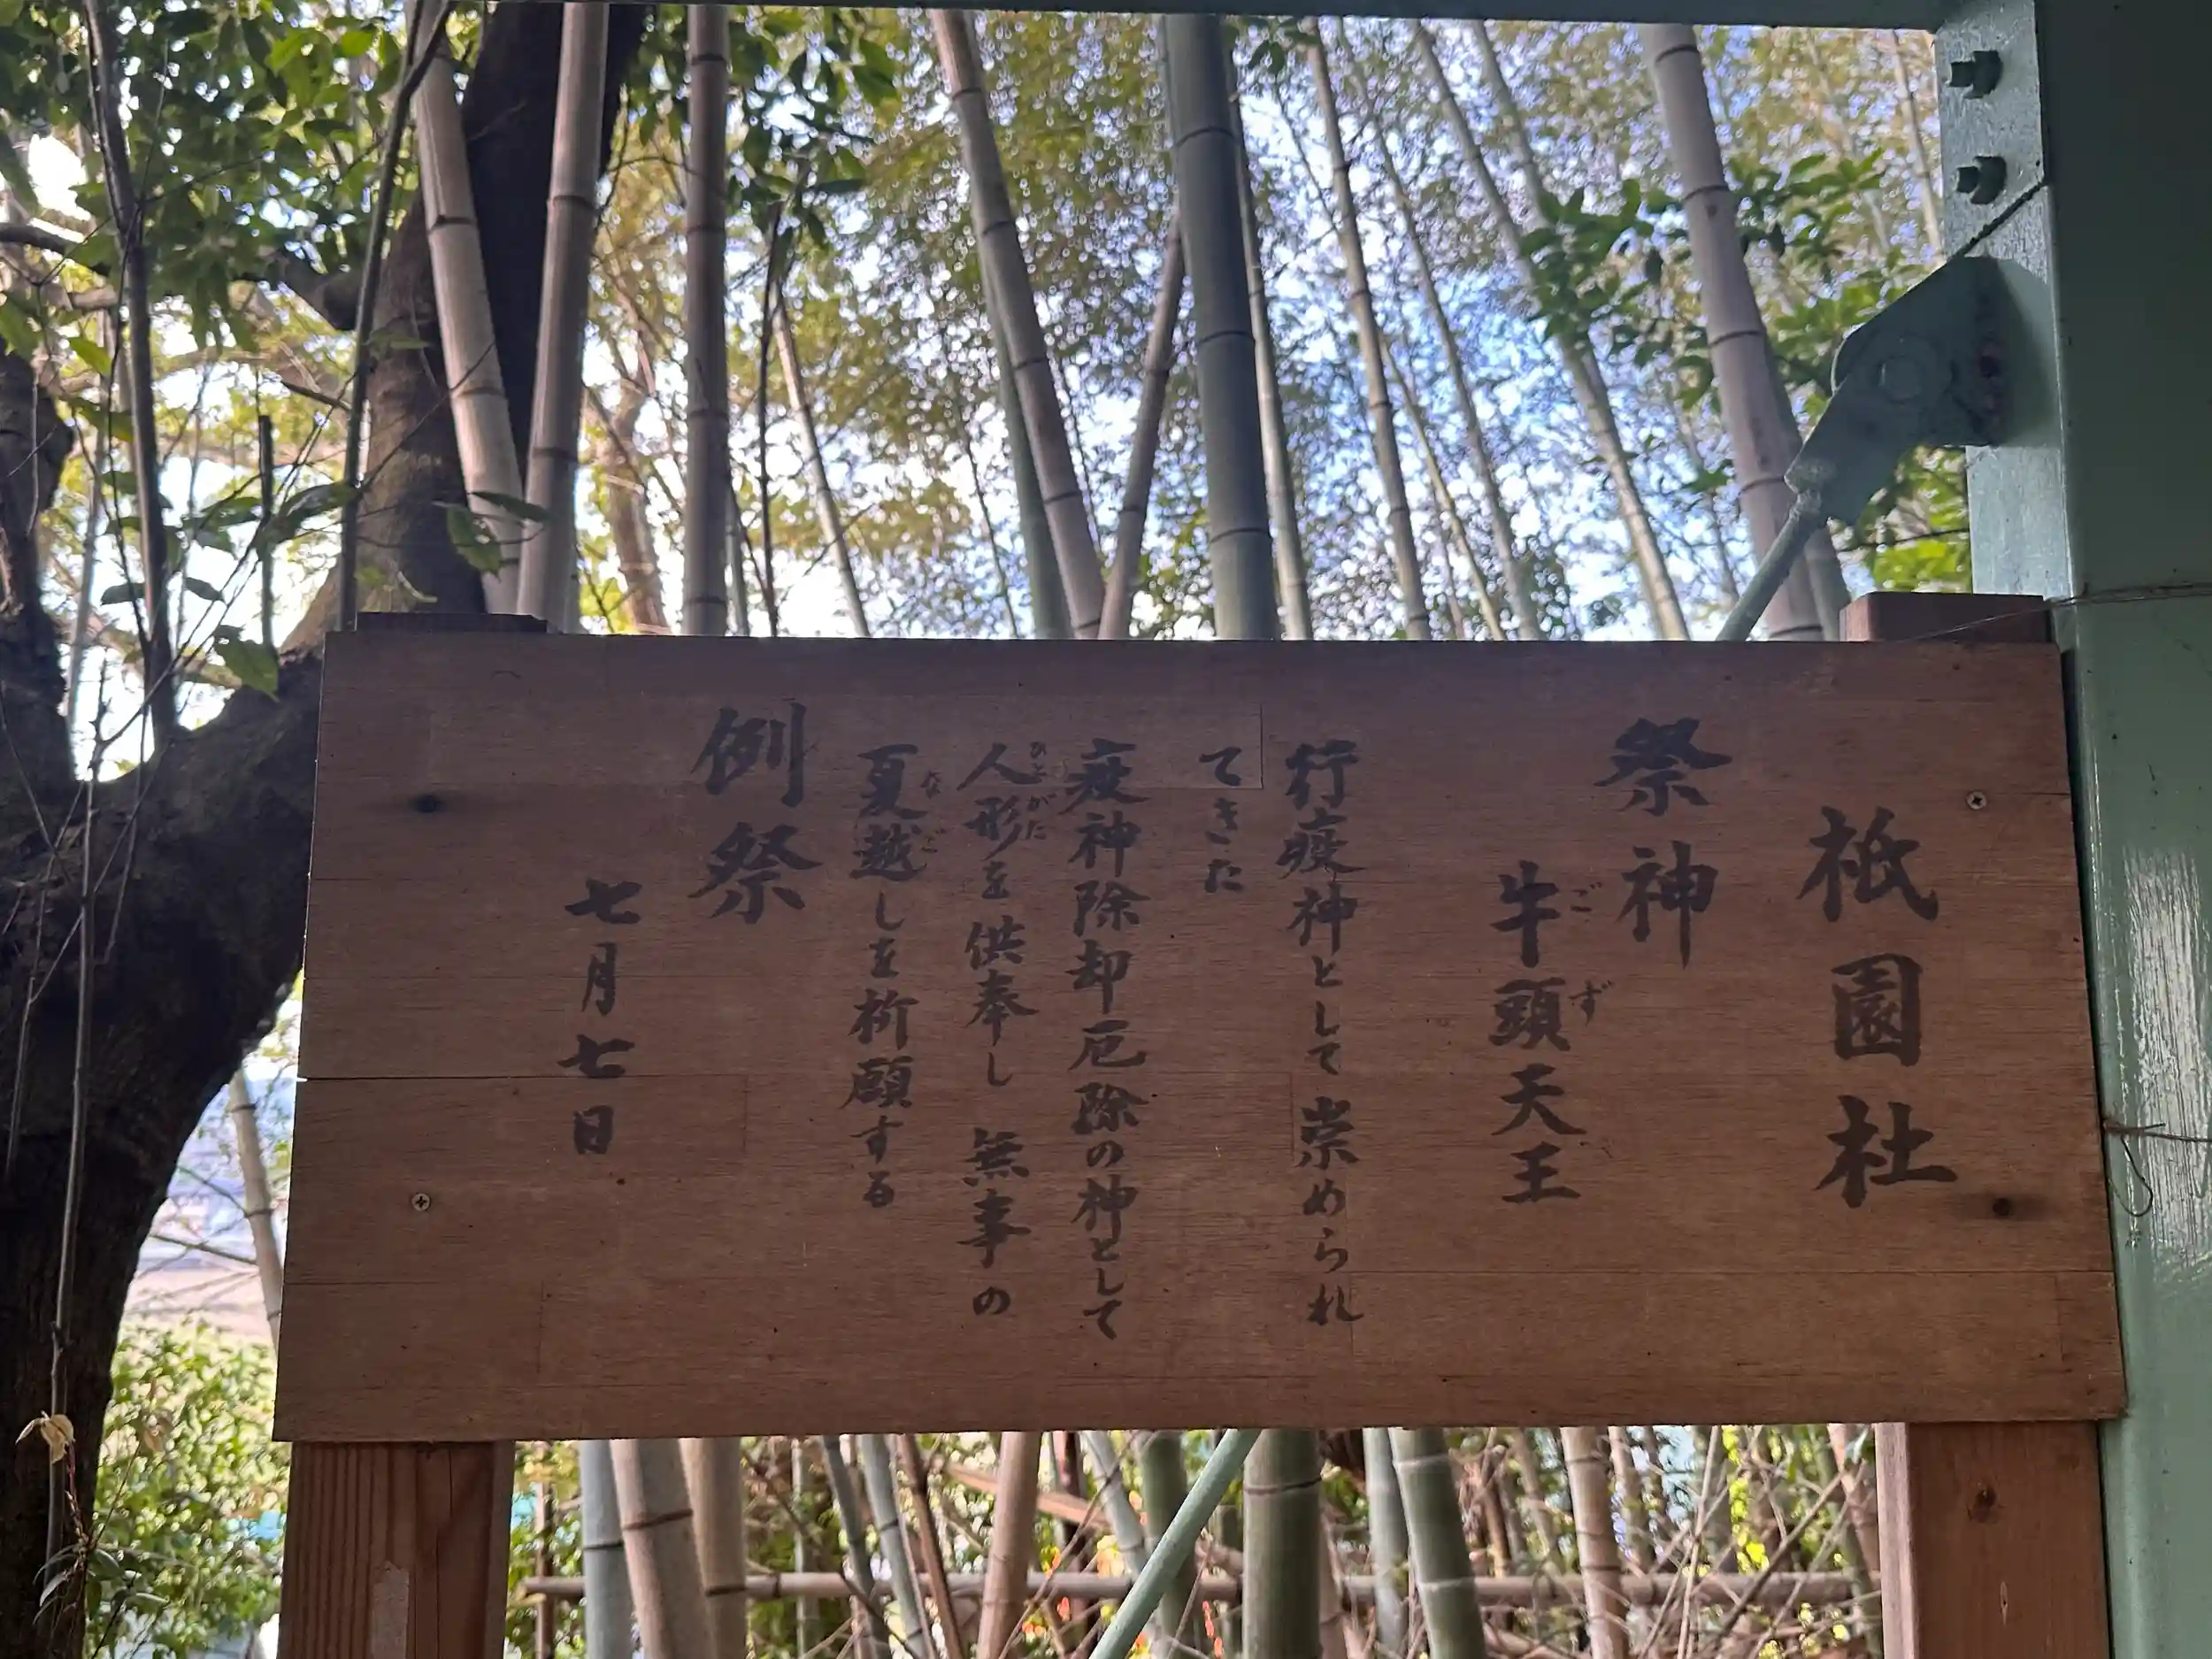 祇園社
祭神
牛頭天王
ごず
行疫神として崇められ
てきた
疫神除却厄除の神として
人形を供奉し 無事の
ひとがた
夏越しを祈願する
なご
例祭
七月七日